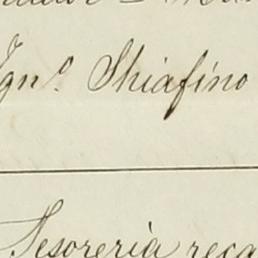 Ygnº Shiafino
Tesoreria reca